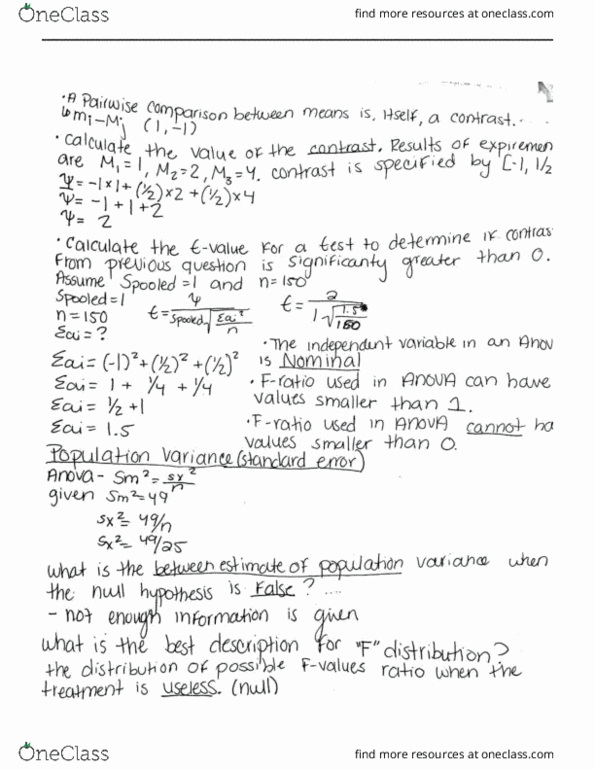 OneClass
find more resources at oneclass.com
• A Pairwise comparison between means is, itself, a contrast.
↳ mi - Mj (1, -1)
• Calculate the value of the contrast. Results of expiremen
are M₁ = 1, M₂ = 2, M₃ = 4. contrast is specified by [-1, 1/2
Ψ = -1 × 1 + (½) × 2 + (½) × 4
Ψ = -1 + 1 + 2
Ψ = 2
• Calculate the t-value for a test to determine if contras
from previous question is significanty greater than 0.
Assume Spooled = 1 and n = 150
Spooled = 1
n = 150
t = Ψ / Spooled √(Σai² / n)
t = 2 / 1 √(1.5 / 150)
Σai = ?
Σai = (-1)² + (½)² + (½)²
Σai = 1 + ¼ + ¼
Σai = ½ + 1
Σai = 1.5
• The independent variable in an Anov
is Nominal
• F-ratio used in ANOVA can have
values smaller than 1.
• F-ratio used in ANOVA cannot ha
values smaller than 0.
Population Variance (standard error)
Anova - Sm² = sx² / n
given Sm² = 49
sx² = 49/n
sx² = 49/25
what is the between estimate of population variance when
the null hypothesis is False? ....
- not enough information is given
what is the best description for "F" distribution?
the distribution of possible F-values ratio when the
treatment is useless. (null)
OneClass
find more resources at oneclass.com